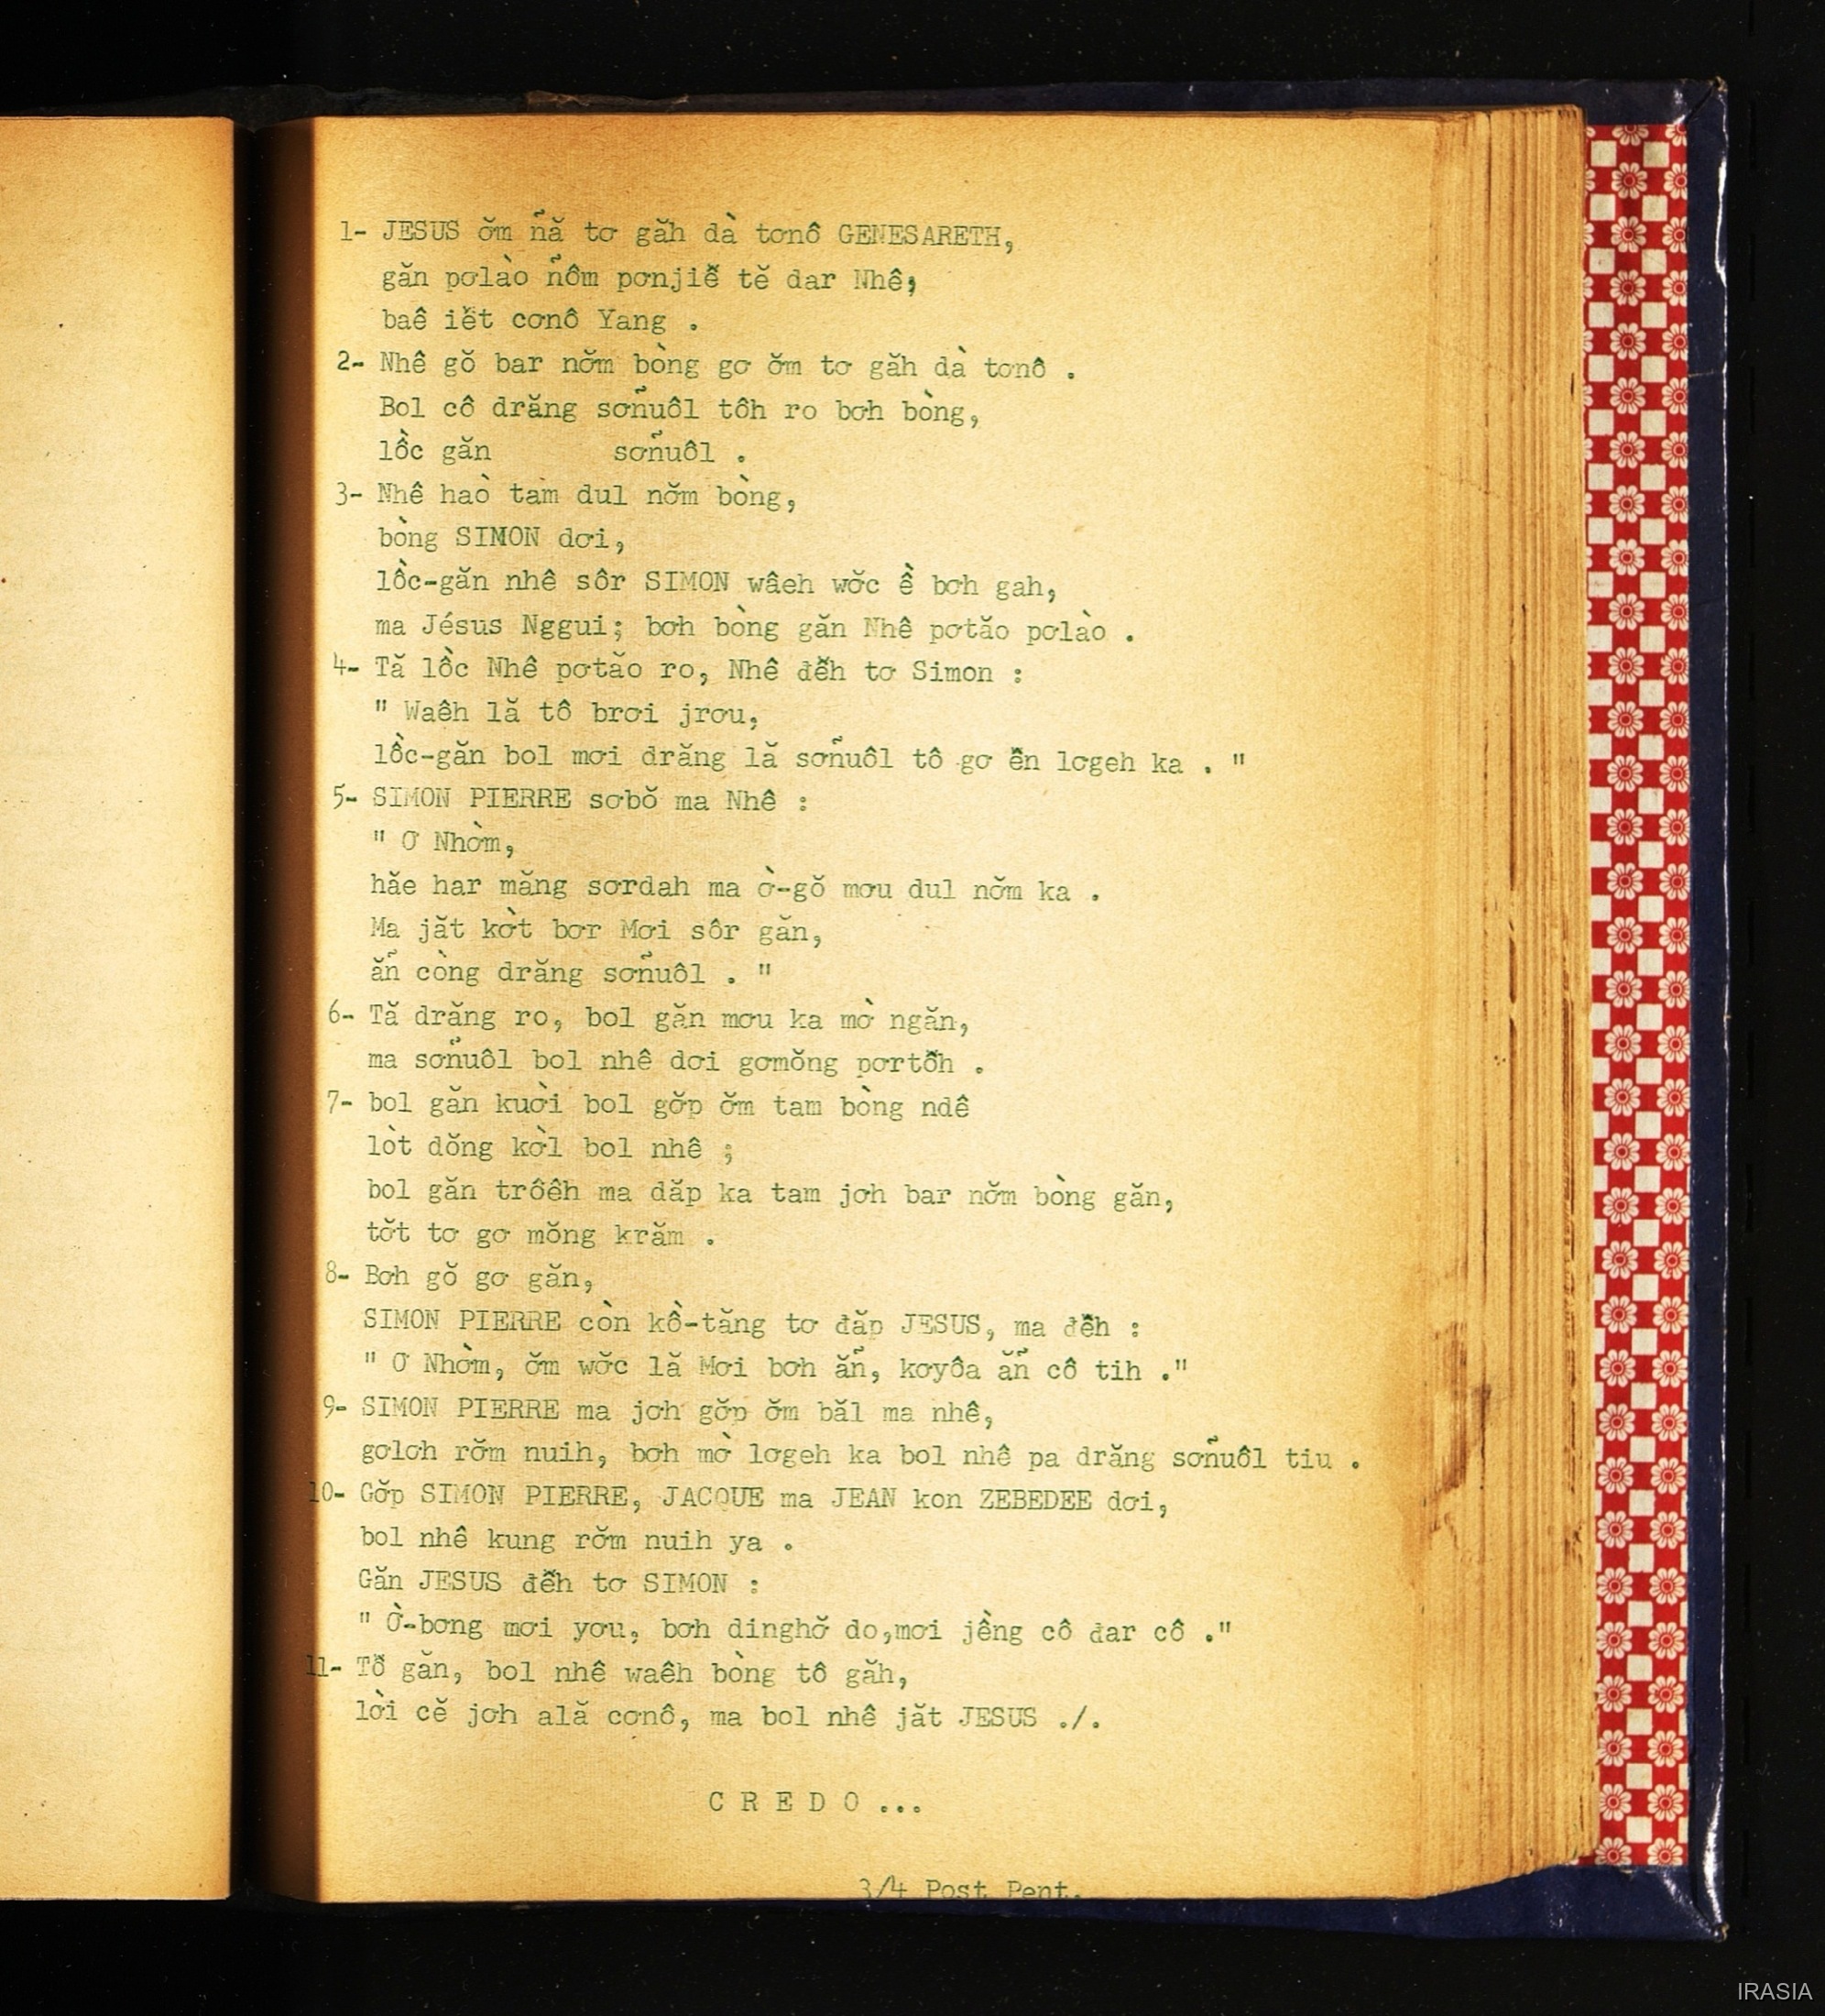 1- JESUS ơ̆m ñă tơ găh dà tơnô GENESARETH,
găn pơlào ñôm pơnjiê̆ tĕ dar Nhê;
baê iê̆t cơnô Yang .
2- Nhê gŏ bar nơ̆m bòng gơ ơ̆m tơ găh dà tơnô .
Bol cô drăng sơñuôl tôh ro bơh bòng,
lồc găn sơñuôl .
3- Nhê haò tam dul nơ̆m bòng,
bòng SIMON dơi,
lồc-găn nhê sôr SIMON wâeh wơ̆c ề bơh gah,
ma Jésus Nggui; bơh bòng găn Nhê pơtăo pơlào .
4- Tă lồc Nhê pơtăo ro, Nhê đê̆h tơ Simon :
" Waêh lă tô brơi jrơu,
lồc-găn bol mơi drăng lă sơñuôl tô gơ ê̆n lơgeh ka . "
5- SIMON PIERRE sơbŏ ma Nhê :
" Ơ Nhờm,
hăe har măng sơrdah ma ờ-gŏ mơu dul nơ̆m ka .
Ma jăt kờt bơr Mơi sôr găn,
ăñ còng drăng sơñuôl . "
6- Tă drăng ro, bol găn mơu ka mờ ngăn,
ma sơñuôl bol nhê dơi gơmŏng pơrtô̆h .
7- bol găn kuời bol gơ̆p ơ̆m tam bòng ndê
lòt dŏng kờl bol nhê ;
bol găn trôêh ma dăp ka tam jơh bar nơ̆m bòng găn,
tơ̆t tơ gơ mŏng krăm .
8- Bơh gŏ gơ găn,
SIMON PIERRE còn kồ-tăng tơ đăp JESUS, ma đê̆h :
" Ơ Nhờm, ơ̆m wơ̆c lă Mơi bơh ăñ, kơyôa ăñ cô tih ."
9- SIMON PIERRE ma jơh gơ̆p ơ̆m băl ma nhê,
gơlơh rơ̆m nuih, bơh mờ lơgeh ka bol nhê pa drăng sơñuôl tiu .
10- Gơ̆p SIMON PIERRE, JACQUE ma JEAN kon ZEBEDEE dơi,
bol nhê kung rơ̆m nuih ya .
Găn JESUS đê̆h tơ SIMON :
" Ờ-bơng mơi yơu, bơh dinghơ̆ do,mơi jềng cô đar cô ."
11- Tô̆ găn, bol nhê waêh bòng tô găh,
lời cĕ jơh ală cơnô, ma bol nhê jăt JESUS ./.
C R E D O ...
3/4 Post Pent.
IRASIA